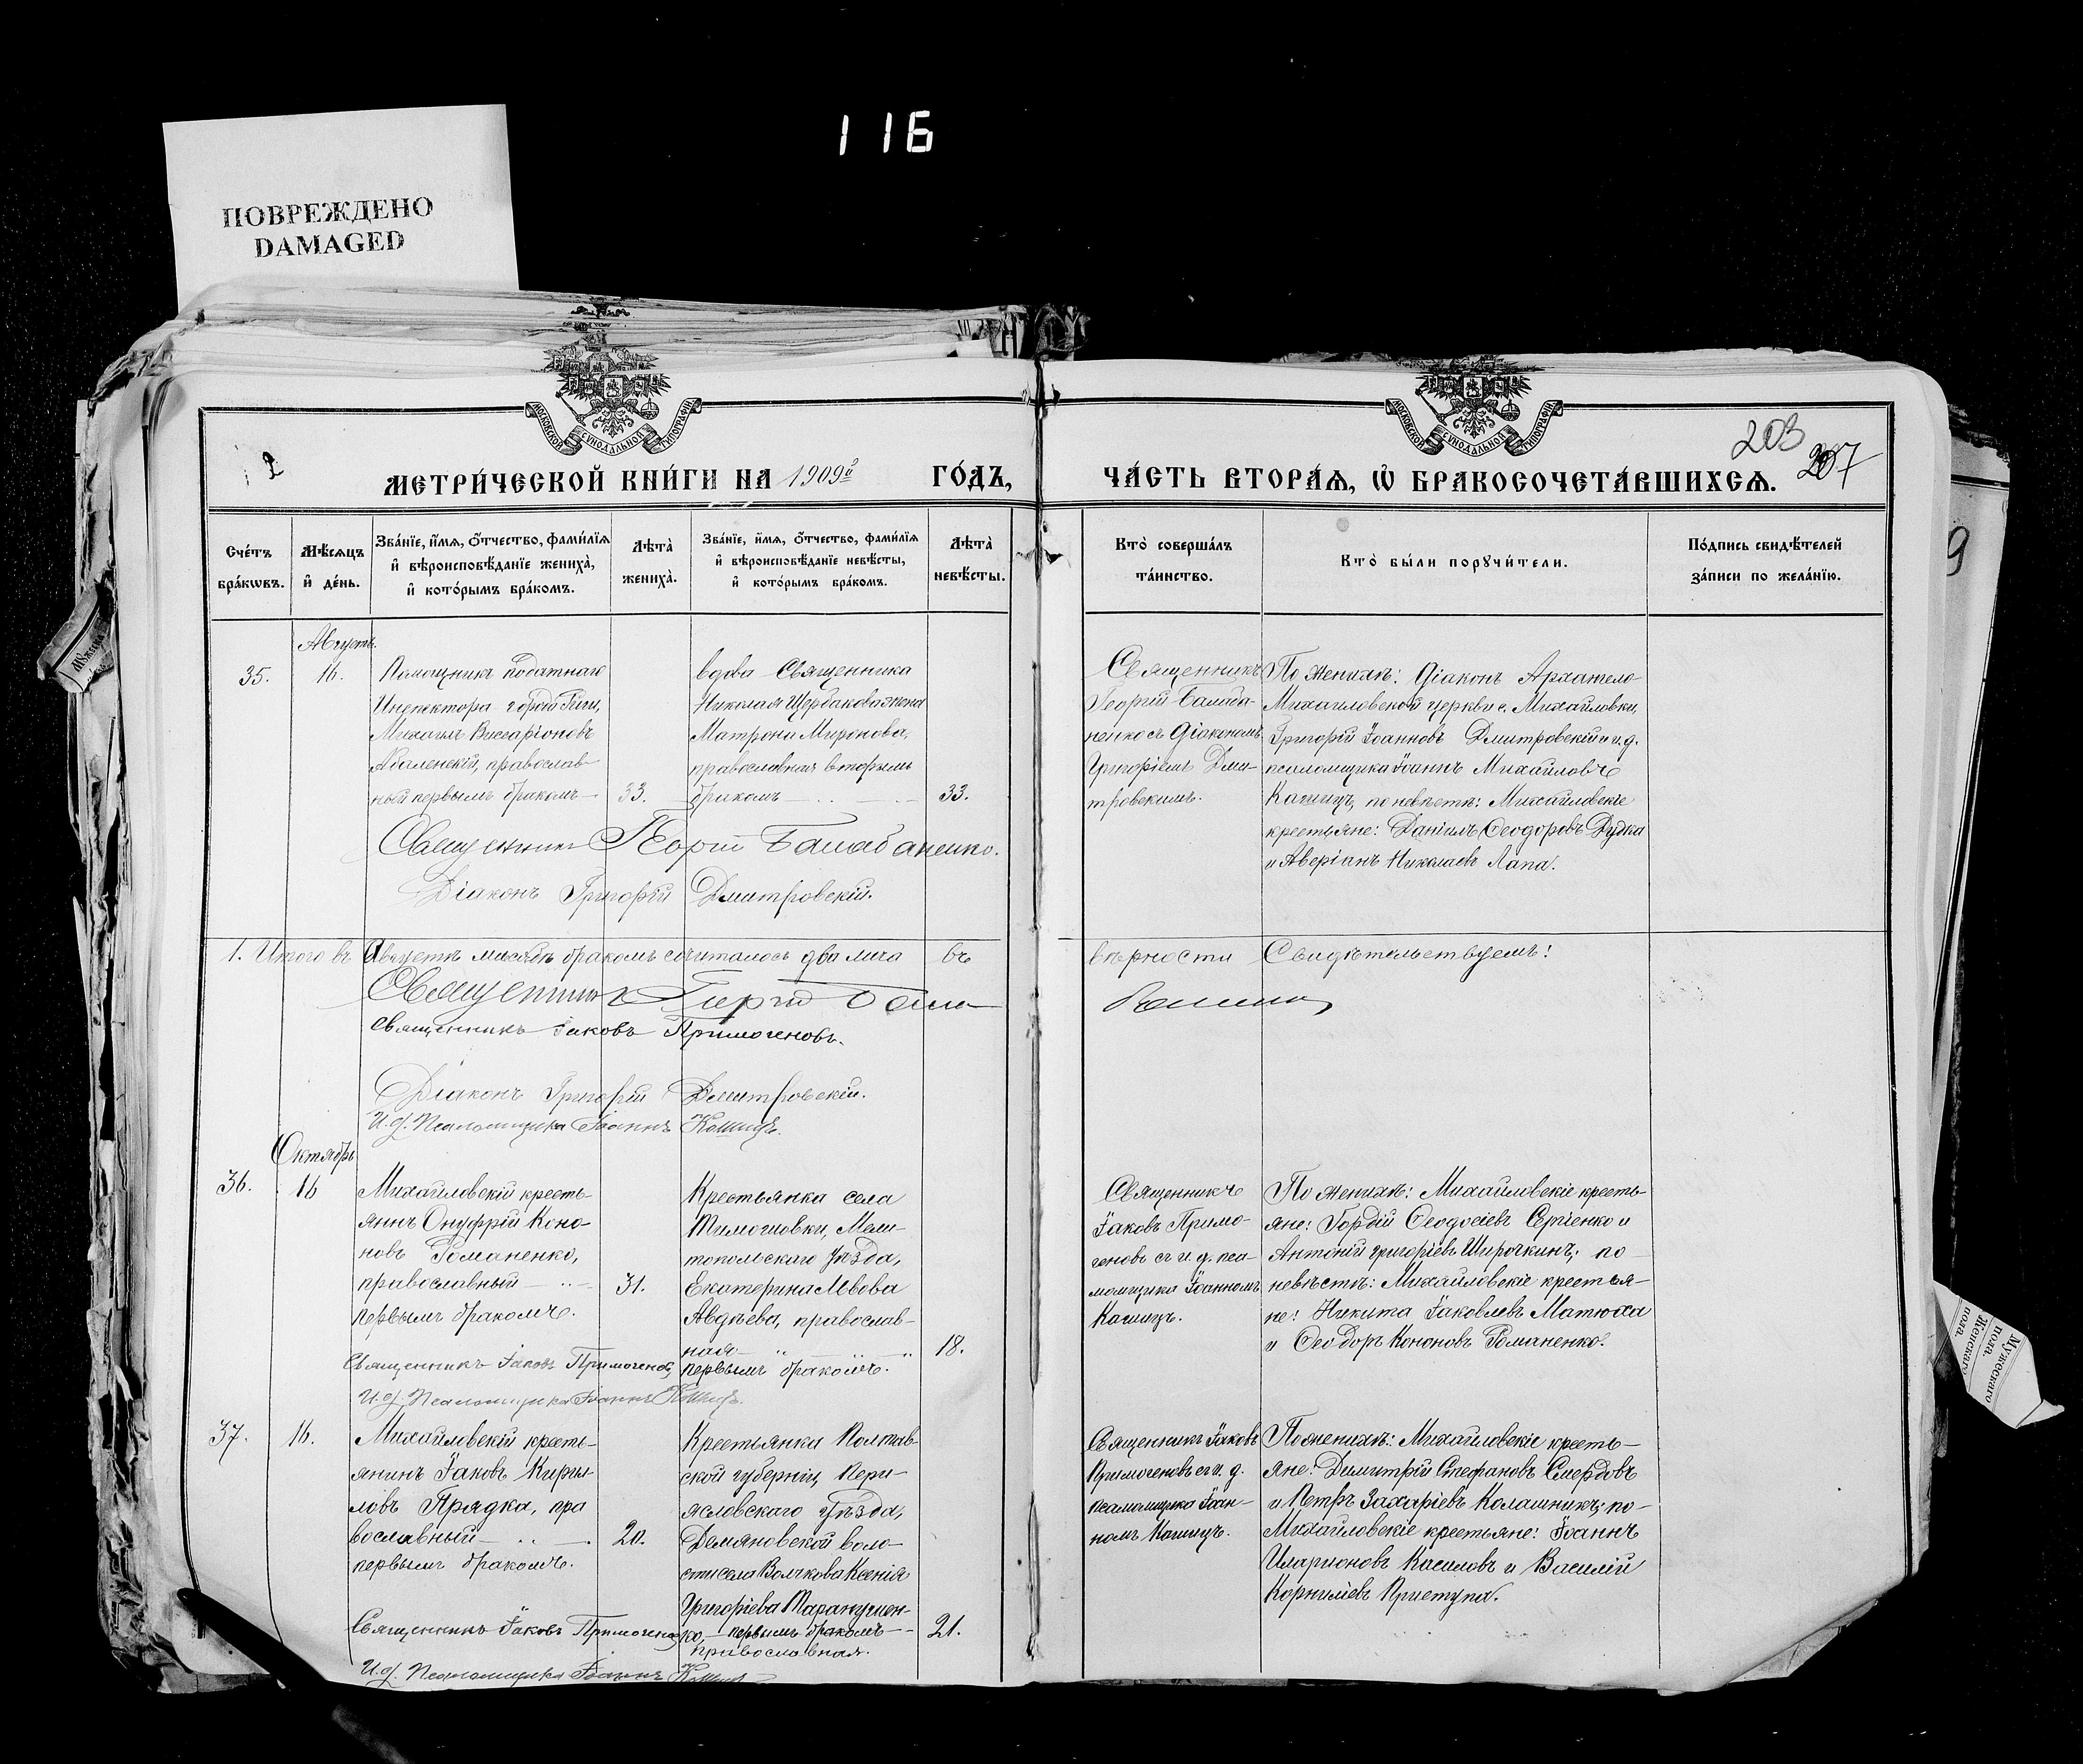 116
ПОВРЕЖДЕНО
DAMAGED
МОСКОВСКОЙ СУНОДАЛЬНОЙ ТИПОГРАФІИ
МОСКОВСКОЙ СУНОДАЛЬНОЙ ТИПОГРАФІИ
203
207
2
МЕТРИ́ЧЕСКОЙ КНИ́ГИ НА 1909й ГО́ДЪ,
ЧА́СТЬ ВТОРА́Я, Ѡ БРАКОСОЧЕТА́ВШИХСЯ.
Сче́тъ бра́кѡвъ.
Мѣ́сяцъ и де́нь.
Зва́нїе, и́мя, ѻ́тчество, фами́лїя и вѣроисповѣ́данїе жениха̀, и кото́рымъ бра́комъ.
Лѣта̀ жениха̀.
Зва́нїе, и́мя, ѻ́тчество, фами́лїя и вѣроисповѣ́данїе невѣ́сты, и кото́рымъ бра́комъ.
Лѣта̀ невѣ́сты.
Кто̀ соверша́лъ та́инство.
Кто̀ бы́ли порꙋчи́тели.
По́дпись свидѣ́телей за́писи по жела́нїю.
Августъ.
35.
16.
Помощникъ Податнаго
Инспектора города Риги,
Михаилъ Виссаріоновъ
православ-
ный первымъ бракомъ
33.
вдова Священника
Николая Щербакова жена
Матрона Миронова,
православная вторымъ
бракомъ
33.
Священникъ
Георгій Балаба-
ненко съ Діакономъ
Григоріемъ Дми-
тровскимъ.
По женихѣ: Діаконъ Архангело
Михайловской церкви с. Михайловки,
Григорій Іоанновъ Дмитровскій и и. д.
псаломщика Іоаннъ Михайловъ
Кашицъ, по невѣстѣ: Михайловскіе
крестьяне: Даніилъ Ѳеодоровъ Дудка
и Аверіанъ Николаевъ Лапа.
Священникъ Георгій Балабаненко.
Діаконъ Григорій Дмитровскій.
1. Итого въ Августѣ мѣсяцѣ бракомъ сочиталось два лица въ
вѣрности Свидѣтельствуемъ:
Священникъ Георгій Бала-
Священникъ Іаковъ Примогеновъ.
Діаконъ Григорій Дмитровскій.
И. д. Псаломщика Іоаннъ Кашицъ.
Октябрь
36.
16
Михайловскій кресть-
янинъ Онуфрій Коно-
новъ Романенко,
православный
первымъ бракомъ.
31.
Крестьянка села
Тимошовки, Мели-
топольскаго Уѣзда,
Екатерина Львова
Авдѣева, православ-
ная
первымъ бракомъ.
18.
Священникъ
Іаковъ Примо-
геновъ съ и. д. пса-
ломщика Іоанномъ
Кашицъ.
По женихѣ: Михайловскіе кресть-
яне: Гордій Ѳеодосіевъ Сергіенко и
Антоній Григоріевъ Широчкинъ; по
невѣстѣ: Михайловскіе крестья-
не: Никита Іаковлевъ Матюха
и Ѳеодоръ Кононовъ Романенко.
Священникъ Іаковъ Примогеновъ
И. д. Псаломщика Іоаннъ Кашицъ.
37.
16.
Михайловскій кресть-
янинъ Іаковъ Кирил-
ловъ Прядка, пра
вославный
первымъ бракомъ.
20.
Крестьянка Полтав-
ской губерніи, Пере-
яславскаго Уѣзда,
Демяновской воло-
сти села Волчкова Ксенія
Григоріева Таранушен-
ко, первымъ бракомъ
православная.
21.
Священникъ Іаковъ
Примогеновъ съ и. д.
псаломщика Іоан-
номъ Кашицъ.
По женихѣ: Михайловскіе кресть-
яне: Димитрій Стефановъ Смердовъ
и Петръ Захаріевъ Колашникъ; по-
Михайловскіе крестьяне: Іоаннъ
Иларионовъ Касиловъ и Василій
Корниліевъ Приступа.
Священникъ Іаковъ Примогеновъ
И. д. Псаломщика Іоаннъ Кашицъ
Мужескаго
пола.
Женскаго
пола.